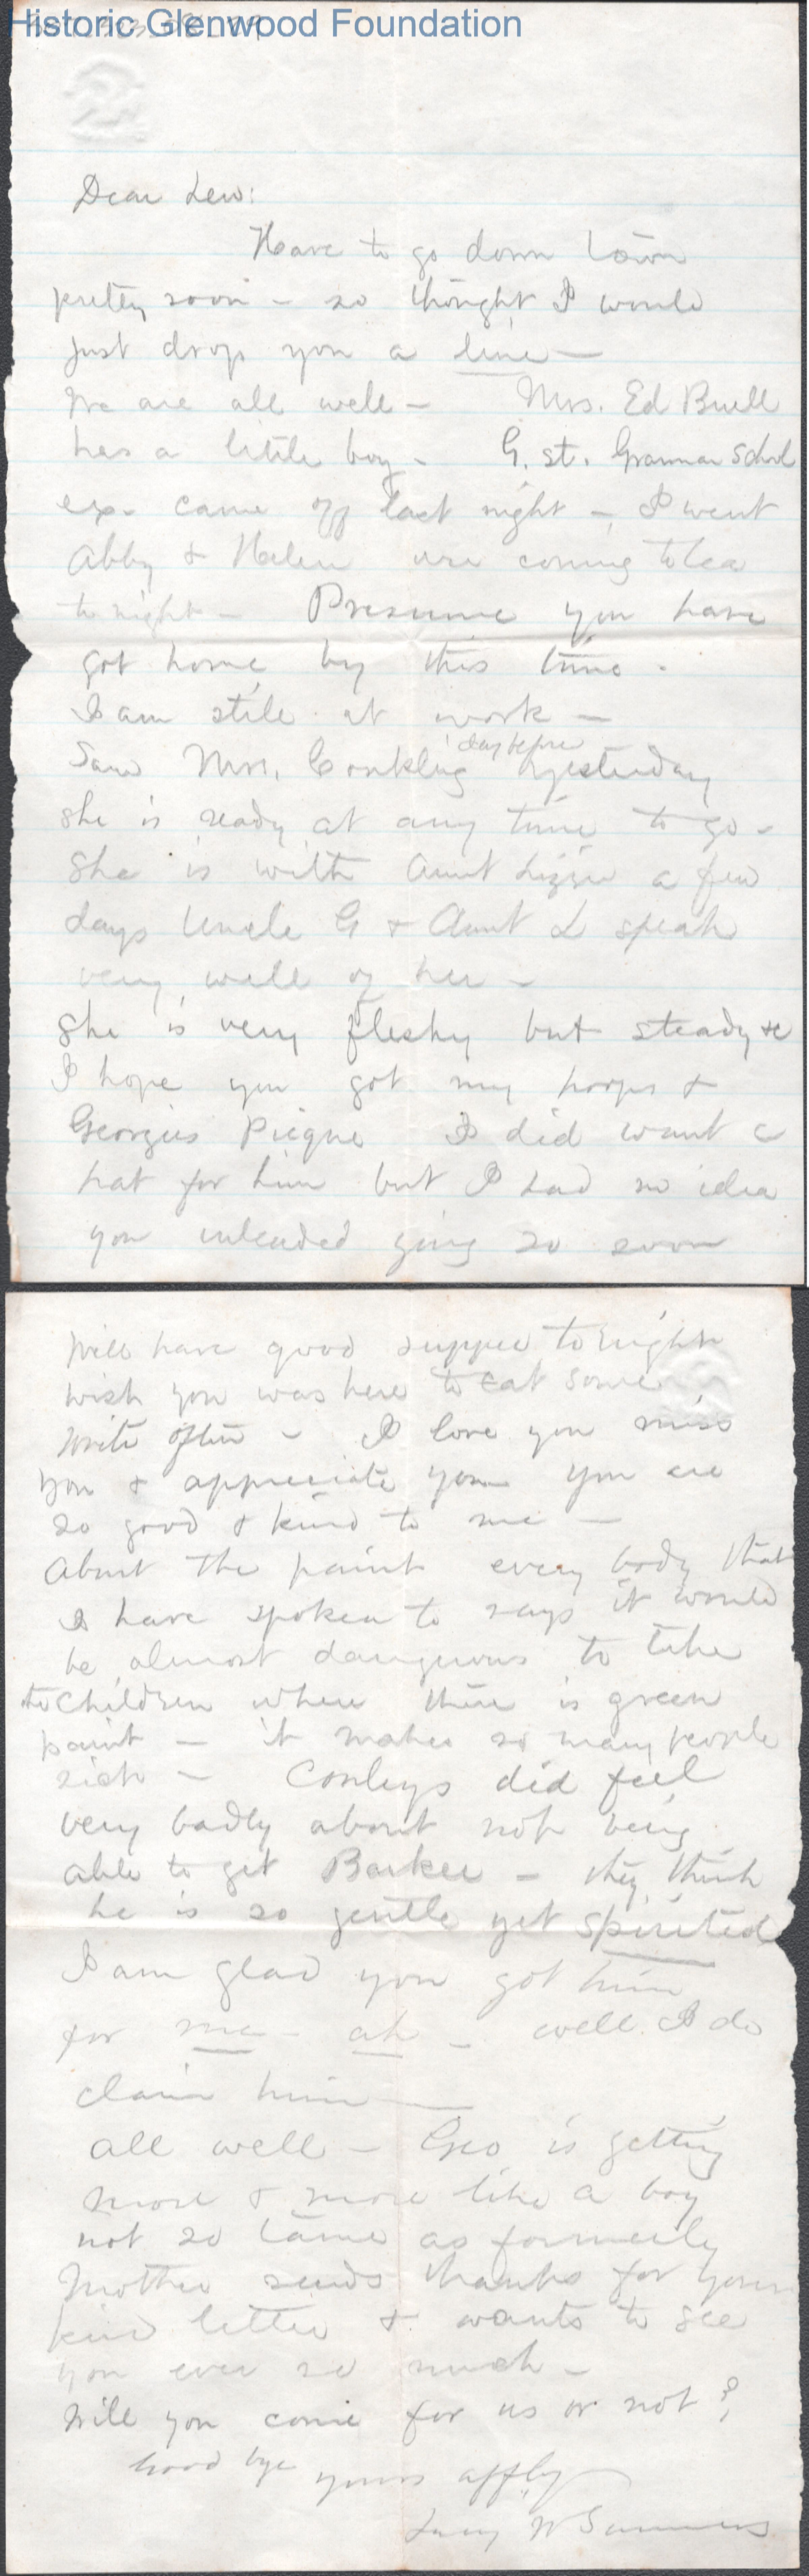 Historic Glenwood Foundation
Dear Lew:
Have to go down town
pretty soon – so thought I would
just drop you a line –
We are all well – Mrs. Ed Buell
has a little boy – G. st. Grammar School
ex. came off last night – I went
Abby & Helen are coming to tea
to night – Presume you have
got home by this time.
I am still at work –
day before
Saw Mrs. Conkling yesterday
she is ready at any time to go –
She is with Aunt Lizzie a few
days Uncle G & Aunt L speak
very well of her –
She is very fleshy but steady &c
I hope you got my hoops &
Georgies Pique I did want a
hat for him but I had no idea
you intended going so soon
Will have good supper to night
wish you was here to eat some
Write often – I love you miss
you & appreciate you you are
so good & kind to me –
About the paint every body that
I have spoken to says it would
be almost dangerous to take
the children where there is green
paint – it makes so many people
sick – Conleys did feel
very badly about not being
able to get Barker – they think
he is so gentle yet spirited
I am glad you got him
for me – ah – well I do
claim him –
all well – Geo is getting
more & more like a boy
not so tame as formerly
Mother sends thanks for your
kind letter & wants to see
you ever so much –
Will you come for us or not?
Good bye
yours affly
Lucy W Summers